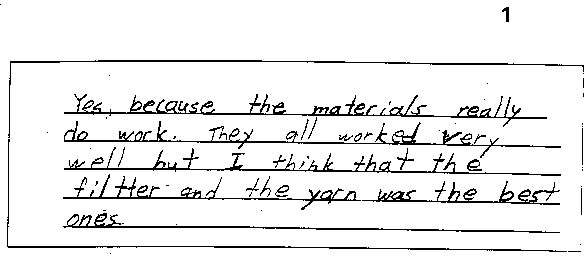 1
Yes, because the materials really
do work. They all worked very
well but I think that the
filtter and the yarn was the best
ones.